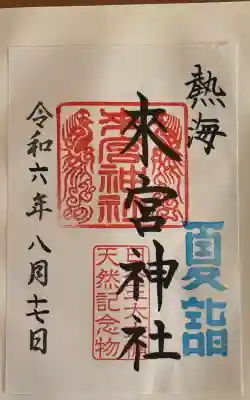 熱海
來宮神社
夏詣
來宮神社
天然記念物
令和六年八月十七日